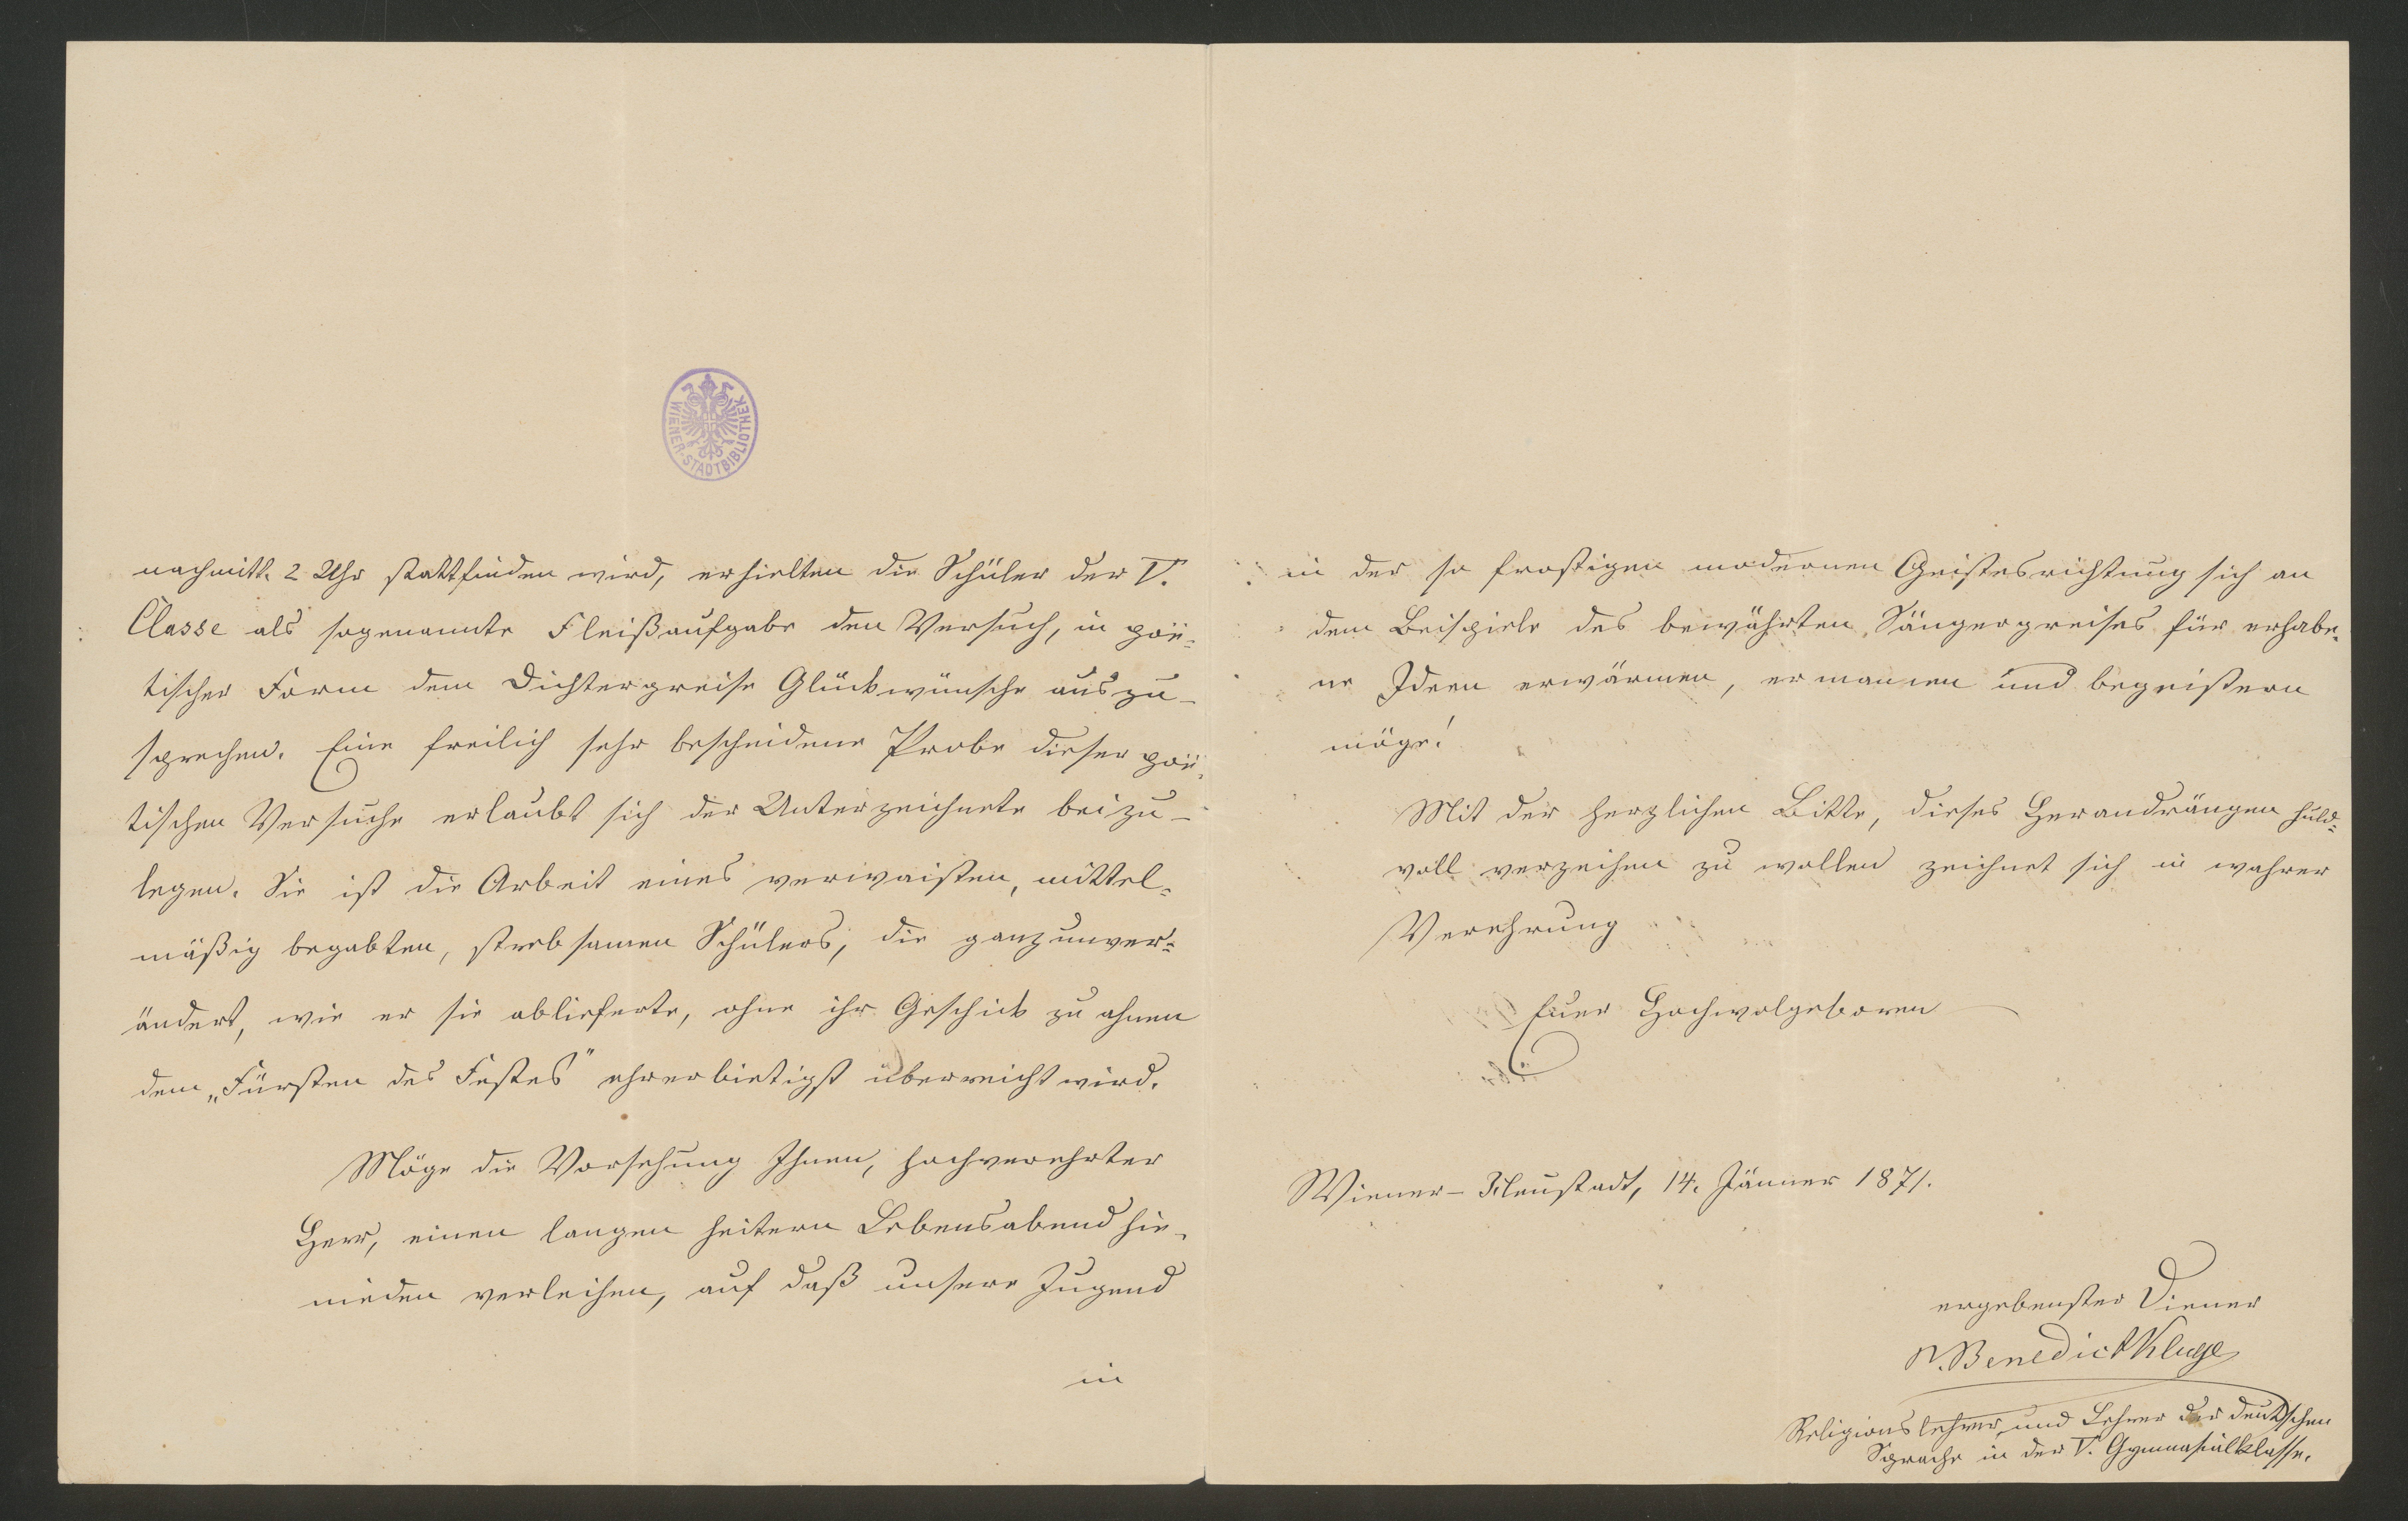 WIENER-STADTBIBLIOTHEK
nachmitt. 2 Uhr stattfinden wird, erhielten die Schüler der V.
Classe als sogenannte Fleißaufgabe den Versuch, in poë-
tischer Form dem Dichtergreise Glückwünsche auszu-
sprechen. Eine freilich sehr bescheidene Probe dieser poë-
tischen Versuche erlaubt sich der Unterzeichnete beizu-
legen. Sie ist die Arbeit eines verwaisten, mittel-
mäßig begabten, strebsamen Schülers, die ganz unver-
ändert, wie er sie ablieferte, ohne ihr Geschick zu ahnen
dem „Fürsten des Festes" ehrerbietigst überreicht wird.
Möge die Vorsehung Ihnen, hochverehrter
Herr, einen langen heitern Lebensabend hie-
nieden verleihen, auf daß unsere Jugend
in
in der so frostigen modernen Geistesrichtung sich an
dem Beispiele des bewährten Sängergreises für erhabe-
ne Ideen erwärmen, ermannen und begeistern
möge!
Mit der herzlichen Bitte, dieses Herandrängen huld-
voll verzeihen zu wollen zeichnet sich in wahrer
Verehrung
Euer Hochwolgeboren
Wiener-Neustadt, 14. Jänner 1871.
ergebenster Diener
P. Benedict Kluge
Religionslehrer und Lehrer der deutschen
Sprache in der V. Gymnasialklasse.